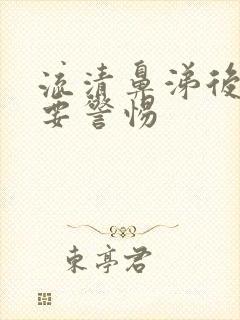 流清鼻涕後
要警惕
东亭君